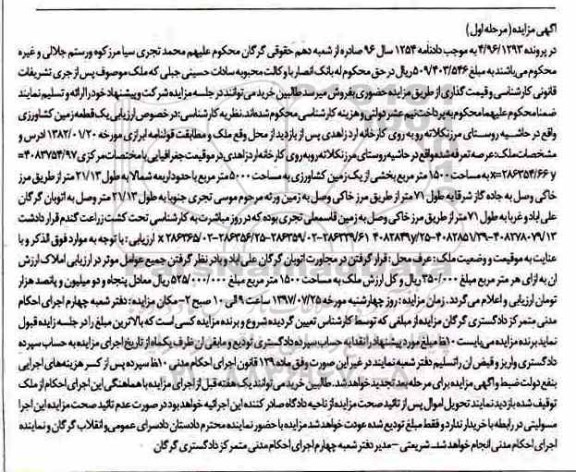 آگهی مزایده (مرحله اول)
در پرونده ۴/۹۶/۱۲۹۳ به موجب دادنامه ۱۲۵۴ سال ۹۶ صادره از شعبه دهم حقوقی گرگان محکوم علیهم محمد تجری سیا مرزکوه و رستم جلالی و غیره
محکوم می‌باشند به مبلغ ۵۰۹/۴۰۳/۵۴۶ ریال در حق محکوم له بانک انصار با وکالت محبوبه سادات حسینی جبلی که ملک موصوف پس از جری تشریفات
قانونی کارشناسی و قیمت گذاری از طریق مزایده حضوری بفروش میرسد طالبین خرید می‌توانند در جلسه مزایده شرکت و پیشنهاد خود را ارائه و تسلیم نمایند
ضمنا محکوم علیهما محکوم به پرداخت نیم عشر دولتی و هزینه کارشناسی محکوم شده‌اند. نظریه کارشناسی: در خصوص ارزیابی یک قطعه زمین کشاورزی
واقع در حاشیه روستای مرزنکلاته رو به روی کارخانه آرد زاهدی پس از بازدید از محل وقع ملک و مطابقت قولنامه ابرازی مورخه ۱۳۸۲/۰۱/۲۰ آدرس و
مشخصات ملک: عرصه تعرفه شده واقع در حاشیه روستای مرزنکلاته رو به روی کارخانه آرد زاهدی در موقیمت جغرافیایی با مختصات مرکزی ۴۰۸۳۷۵۴/۹۷=
y x=۲۸۶۳۵۴/۶۶ به مساحت ۱۵۰۰ متر مربع بخشی از یک زمین کشاورزی به مساحت ۵۰۰۰ متر مربع با حدود اربعه شمالا به طول ۲۱/۱۳ متر از طریق مرز
خاکی وصل به جاده گاز شرقا به طول ۷۱ متر از طریق مرز خاکی وصل به زمین ورثه مرحوم موسی تجری جنوبا به طول ۲۱/۱۳ متر وصل به اتوبان گرگان
علی آباد و غربا به طول ۷۱ متر از طریق مرز خاکی وصل به زمین قاسمعلی تجری بوده که در روز مباشرت به کارشناسی تحت کشت زراعت گندم قرار داشت
۴۰۸۲۷۸۰۷۹/۱۳-۴۰۸۲۸۵۱/۲۹-۴۰۸۲۸۴۹y/۲۵ ۲۸۶۳۳۹/۶۱-۲۸۶۳۵۹/۰۲-۲۸۶۳۵۶/۲۵-۲۸۶۳۶۵/۰۲ x ارزیابی: با توجه به موارد فوق الذکر و با
عنایت به موقیمت و وضعیت ملک: عرف محل: قرار گرفتن در مجاورت اتوبان گرگان علی آباد و با در نظر گرفتن جمیع عوامل موثر در ارزیابی املاک ارزش
آن به ازای هر متر مربع مبلغ ۳۵۰/۰۰۰ ریال و کل ارزش ملک به مساحت ۱۵۰۰ متر مربع مبلغ ۵۲۵/۰۰۰/۰۰۰ ریال معادل پنجاه و دو میلیون و پانصد هزار
تومان ارزیابی و اعلام می‌گردد. زمان مزایده: روز چهارشنبه مورخه ۱۳۹۷/۰۷/۲۵ ساعت ۹ الی ۱۰ صبح ۲- مکان مزایده: دفتر شعبه چهارم اجرای احکام
مدنی متمرکز دادگستری گرگان مزایده از مبلغی که توسط کارشناس تعیین گردیده شروع و برنده مزایده کسی است که بالاترین مبلغ را در جلسه زایده قبول
نماید برنده مزایده می‌بایست ۱۰٪ مبلغ مورد پیشنهاد را نقدا به حساب سپرده دادگستری تودیع و مابقی آن ظرف یکماه از تاریخ اجرای مزایده به حساب سپرده
دادگستری واریز و قبض آن را تسلیم دفتر شعبه نمایند در غیر این صورت وفق ماده ۱۲۹ قانون اجرای احکام مدنی ۱۰٪ سپرده پس از کسر هزینه‌های اجرایی
بنفع دولت ضبط و آگهی مزایده برای مرحله بعد تجدید خواهد شد. طالبین خرید می‌توانند یک هفته قبل از اجرای مزایده با هماهنگی این اجرای احکام از ملک
توقیف شده بازدید نمایند تحویل اموال پس از تائید صحت مزایده از ناحیه دادگاه صادر کننده این اجرائیه خواهد بود در صورت عدم تائید صحت مزایده این اجرا
مسولیتی در رابطه با خریدار ندارد و فقط مبلغ تودیع شده عودت خواهد شد مزایده با حضور نماینده محترم دادستان دادسرای عمومی و انقلاب گرگان و نماینده
اجرای احکام مدنی انجام خواهد شد. شریعتی - مدیر دفتر شعبه چهارم اجرای احکام مدنی متمرکز دادگستری گرگان